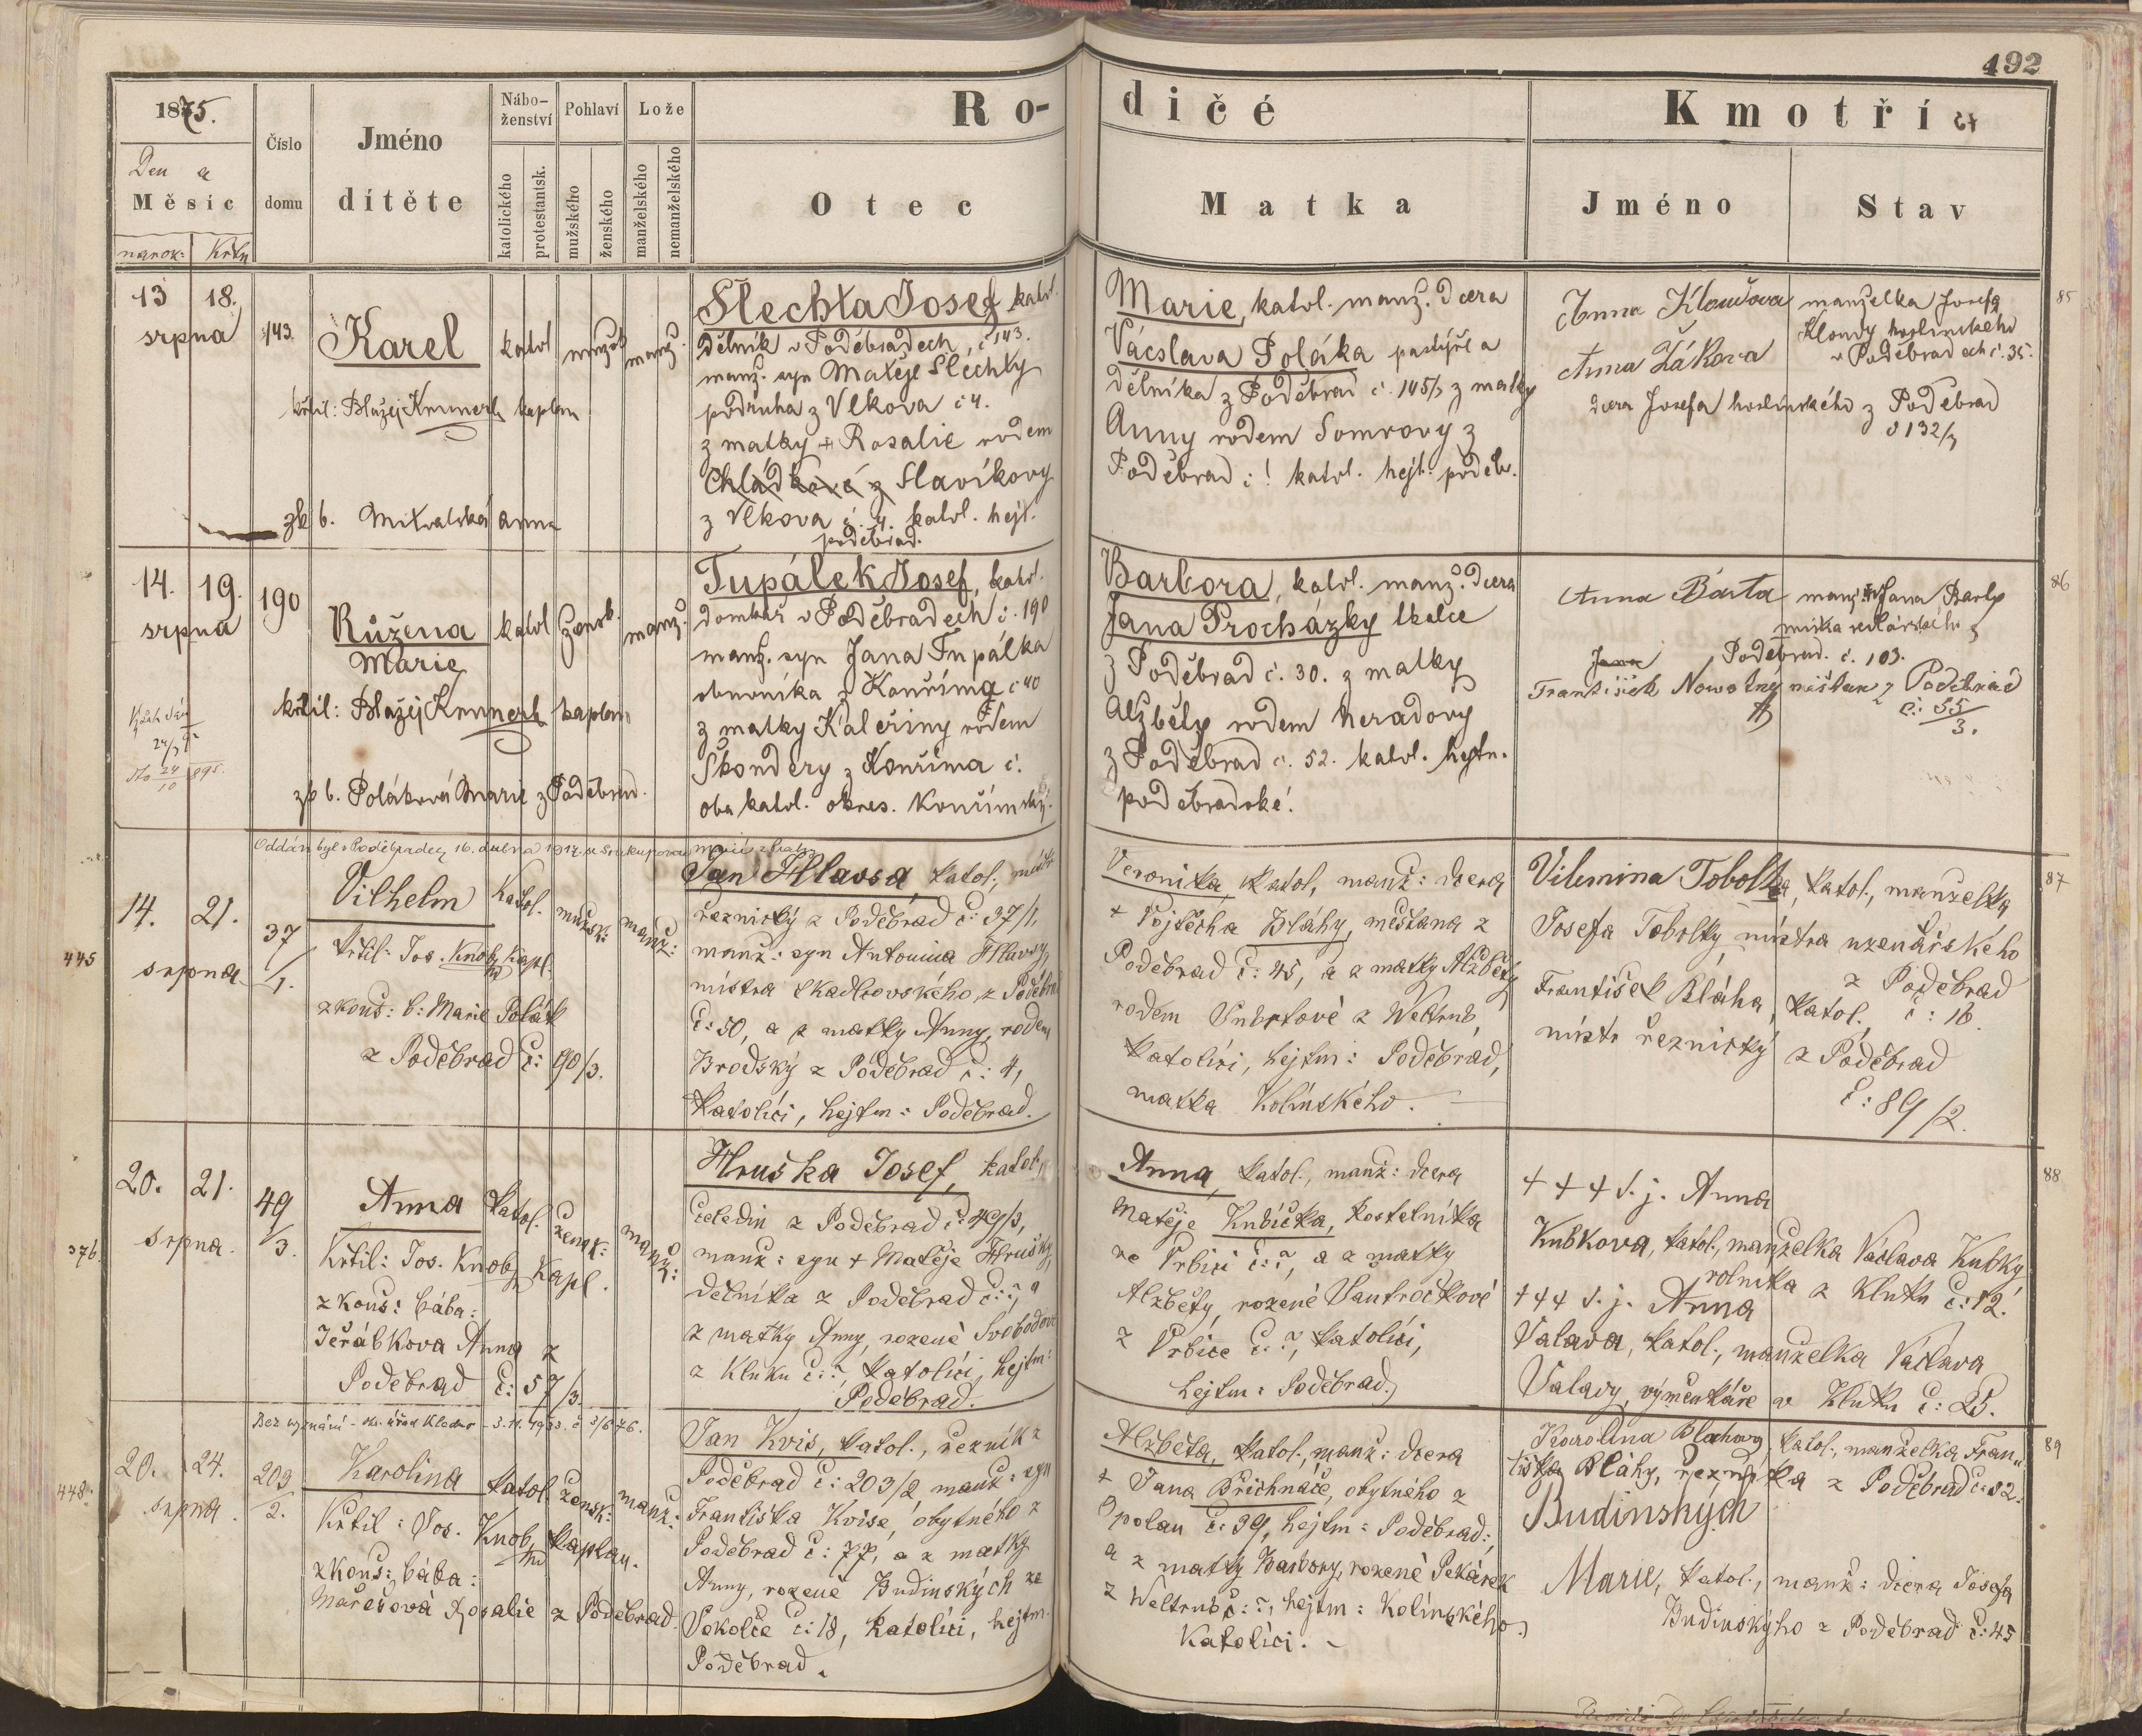 492
1875.
Den a
Měsíc
naroz: Křtu
Číslo
domu
Jméno
dítěte
Nábo-
ženství
katolického
protestantsk.
Pohlaví
mužského
ženského
Lože
manželského
nemanželského
Ro-
Otec
dičé
Matka
Kmotři
Jméno
Stav
13 18.
srpna
143
Karel
katol
mužsk
manž.
křtil: Blažej Krunert kaplan
zk b. Mitvalská Anna
Šlechta Josef katol.
dělník v Poděbradech, č 143.
manž. syn Matěje Šlechty
podruha z Vlkova č 4.
z matky + Rosalie rodem
Chládkové z Slavíkovy
z Vlkova č. 4. katol. hejt.
poděbrad.
Marie, katol. manž. dcera
Vácslava Poláka pastýře a
dělníka z Poděbrad č. 145/3 z matky
Anny rodem Somrovy z
Poděbrad č ! katol. hejt. poděb.
Anna Kloudova manželka Josefa
Kloudy hostinského
v Poděbradech č. 35.
Anna Žákova
dcera Josefa hostinského z Poděbrad
č 132/3
85
14. 19.
srpna
190
Růžena
Marie
katol
žensk.
manž.
křtil: Blažej Krunert kaplan
zk b. Poláková Marie z Poděbrad.
Tupálek Josef, katol.
domkář v Poděbradech č. 190
manž. syn Jana Tupálka
obuvníka z Kouřima č 40
z matky Kateřiny rodem
Škondery z Kouřima č.
oba katol. okres. Kouřimský.
Barbora, katol. manž. dcera
Jana Procházky tkalce
z Poděbrad č. 30. z matky
Alžběty rodem Neradovy
z Poděbrad č. 52. katol. hejtm.
poděbradské.
Anna Bárta manž. Jana Barty
mistra sedlářského z
Poděbrad. č. 103.
Jana
František Nowotny měštan z Poděbrad
č: 55/3.
86
Oddán byl v Poděbradech 16. dubna 1917 se Soukupovou Marií
445
14. 21.
srpna
37/1.
Vilhelm
Katol.
mužsk:
manž:
křtil: Jos. Knob, Kapl.
zkouš: b: Marie Polák
z Poděbrad č: 90/3.
Jan Hlavsa, katol., mistr
řeznický z Poděbrad č: 37/1,
manž: syn Antonína Hlavsy,
mistra tkadlcovského, z Poděbrad
č: 50, a z matky Anny, rodem
Brodský z Poděbrad č: 4,
Katolíci, hejtm: Poděbrad.
Veronika, katol, manž: dcera
+ Vojtěcha Bláhy, měštana z
Poděbrad č: 45, a z matky Alžběty
rodem Vubrtové z Weltrub,
katolíci, hejtm: Poděbrad,
matka Kolínského.
Vilemina Tobolka, katol., manželka
Josefa Tobolky, mistra uzenářského
z Poděbrad
č: 16.
František Bláha, katol.,
mistr řeznický z Poděbrad
č: 89/2.
87
376
20. 21.
srpna.
49/3.
Anna
katol.
žensk:
manž:
Křtil: Jos. Knob, Kapl.
zkouš: bába:
Jeřábkova Anna z
Poděbrad č: 57/3.
Hruška Josef, katol.,
čeledín z Poděbrad č: 49/3,
manž: syn + Matěje Hrušky,
dělníka z Poděbrad č: ?, a
z matky Anny, rozené Svobodové
z Kluku č: ?, katolíci, hejtm:
Poděbrad.
Anna, katol., manž: dcera
Matěje Kubíčka, kostelníka
ve Vrbici č: ?, a z matky
Alžběty, rozené Vantročkové
z Vrbice č: ?, katolíci,
hejtm: Poděbrad.
+++ s. j. Anna
Kubkova, katol., manželka Václava Kubky
rolníka z Kluku č: 12.
+++ s. j. Anna
Valava, katol., manželka Václava
Valavy, výměnkáře v Kluku č: 25.
88
Bez vyznání - ok. úřad Kladno - 3.11.1933. č
448
20. 24.
srpna.
203/2.
Karolina
katol.
žensk:
manž:
Křtil: Jos. Knob, kaplan.
zkouš: bába:
Marešová Rosalie z Poděbrad.
Jan Kvis, katol., řezník z
Poděbrad č: 203/2 manž: syn
Františka Kvise, obytného z
Poděbrad č: 77, a z matky
Anny, rozené Budinských ze
Sokolče č: 18, katolíci, hejtm.
Poděbrad.
Alžběta, katol., manž: dcera
+ Jana Břichnáče, obytného z
Opolan č: 39, hejtm: Poděbrad:,
a z matky Barbory, rozené Pekárek
z Weltrub č: ?, hejtm: Kolínského.
Katolíci.
Karolina Blahova, katol., manželka Fran„
tiška Bláhy, řezníka z Poděbrad č: 82.
Budinských
Marie, katol., manž: dcera Josefa
Budinskýho z Poděbrad č: 45
89